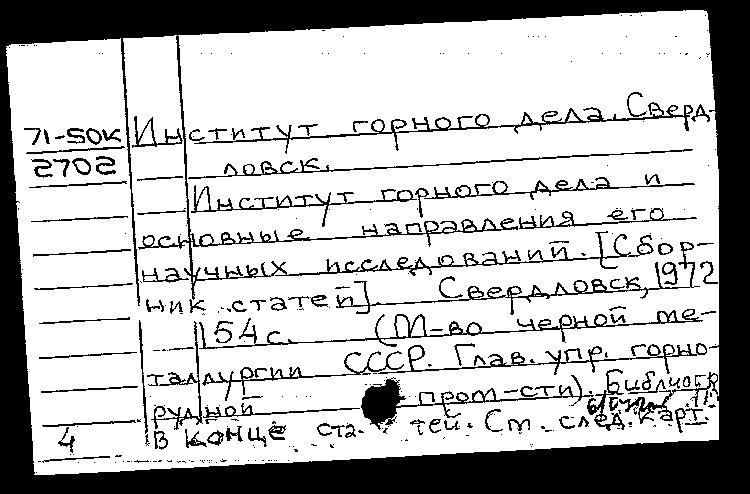 71-SOK Институт горного дела. Сверд-
2702 ловск.
Институт горного дела и
основные направления его
научных исследований. [Сбор-
ник статей]. Свердловск, 1972
154 с. (М-во черной ме-
таллургии СССР. Глав. упр. горно-
рудной пром-сти). Библиогр
4 в конце статей. См. след. карт.